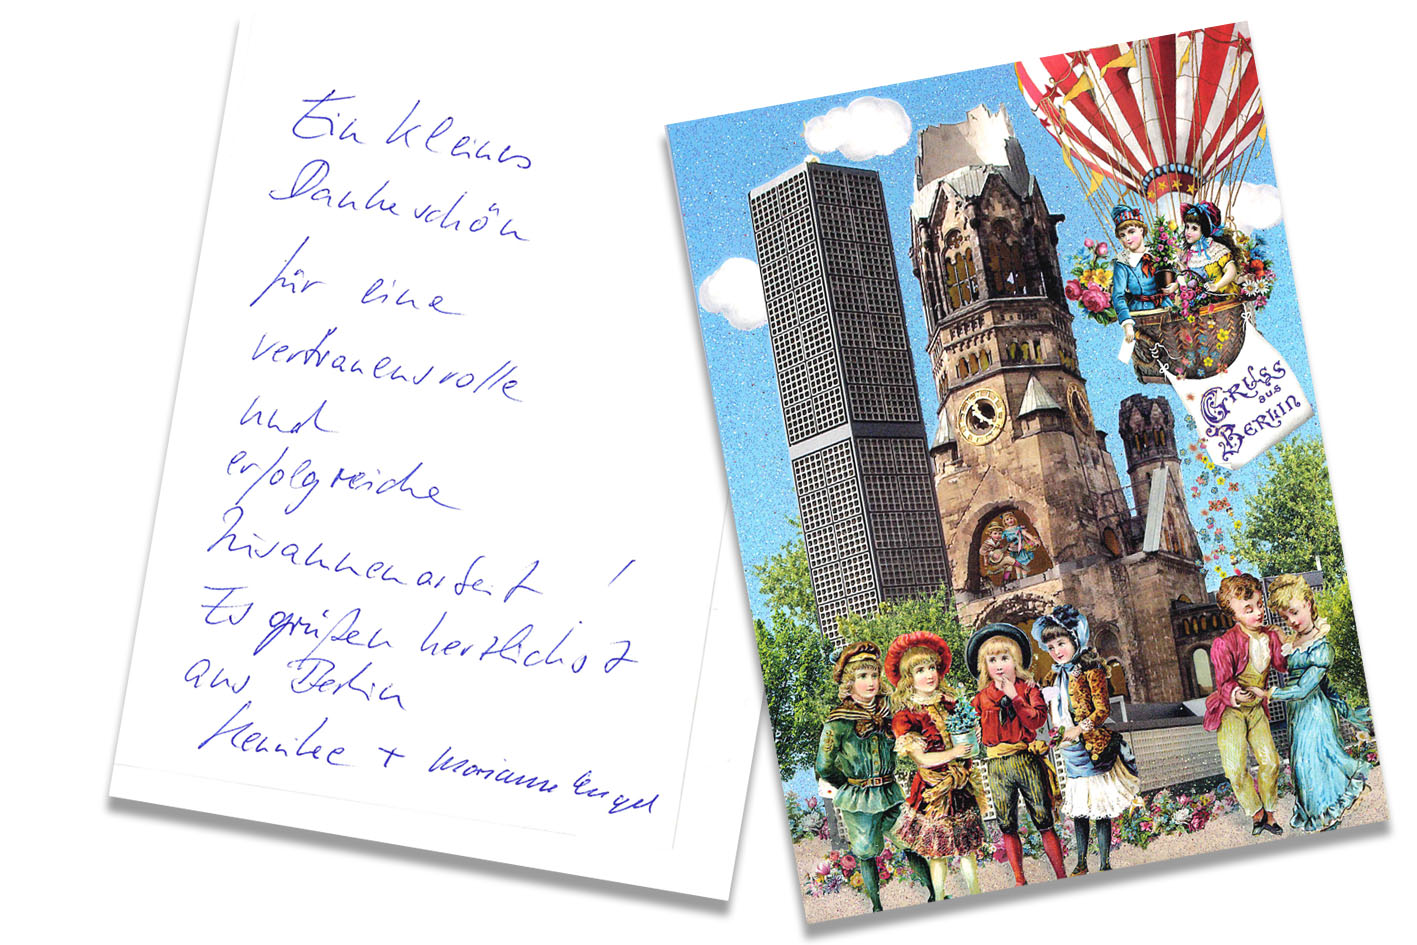 Ein kleines
Dankeschön
für eine
vertrauensvolle
und
erfolgreiche
Zusammenarbeit!
Es grüßen herzlichst
aus Berlin
Henrike + Marianne Engel
GRUSS
aus
BERLIN